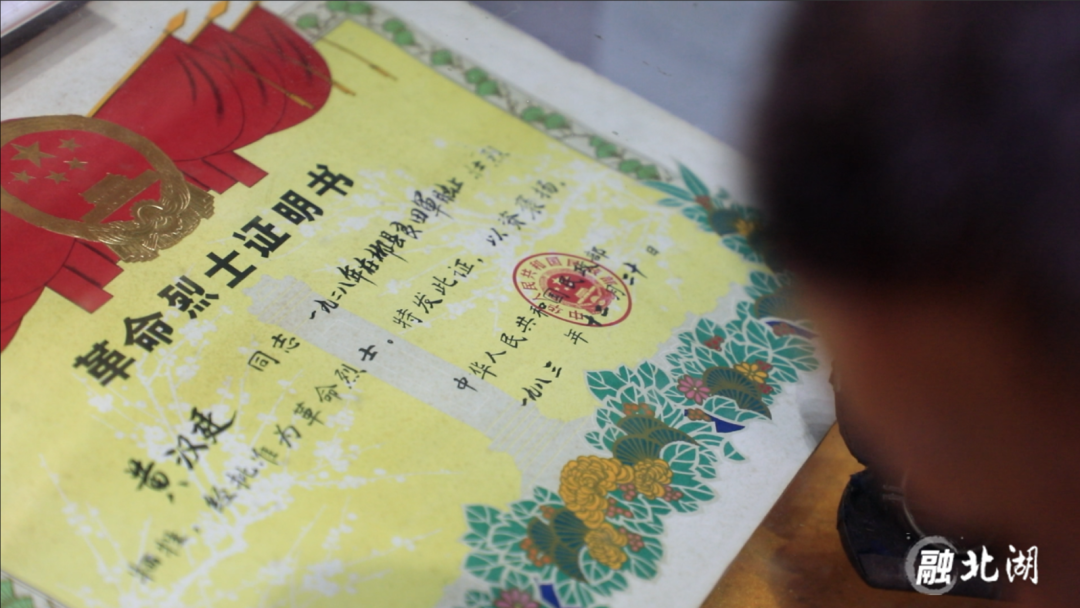 革命烈士证明书
黄汉廷 同志 一九二八年在郴县麦田 壮烈
牺牲,经批准为革命烈士。特发此证,以资褒扬。
中华人民共和国民政部
一九八三年十二月二十日
融北湖